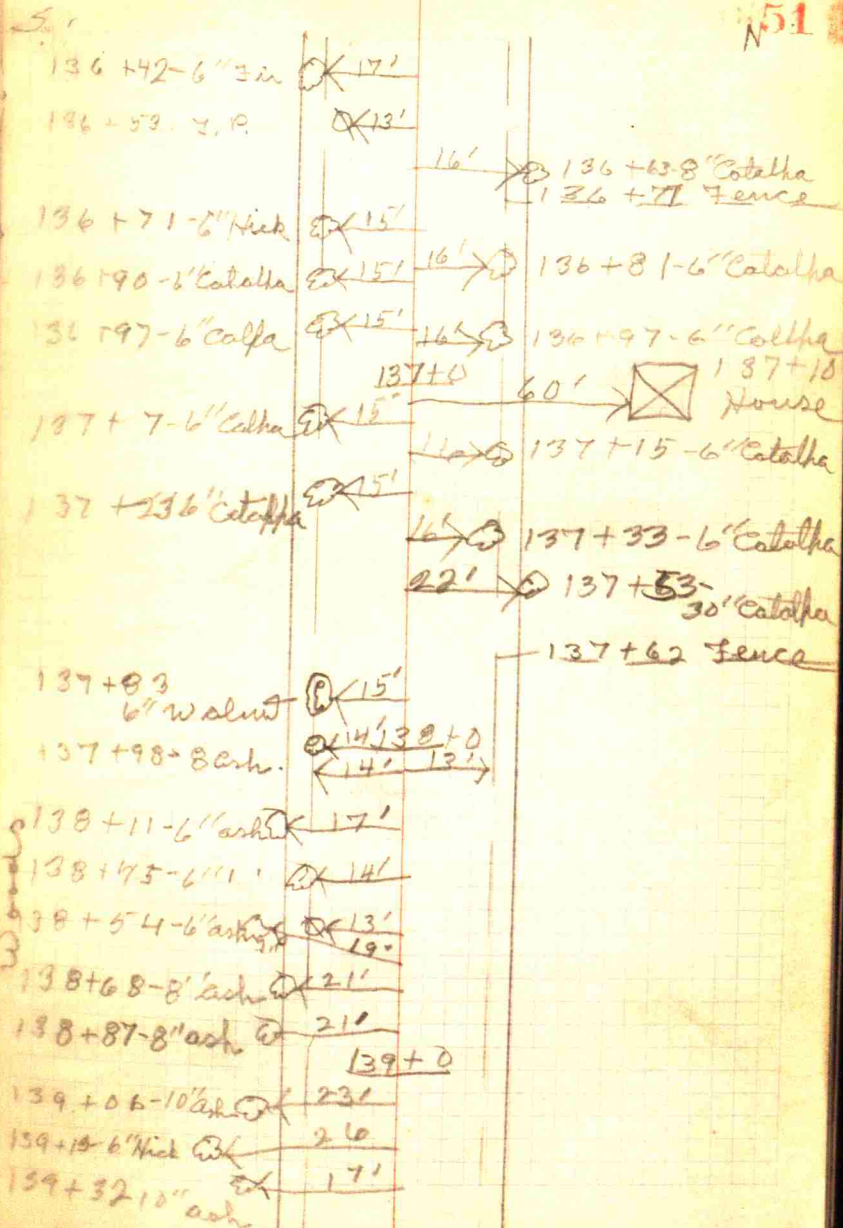 S.
N 51
136 +42-6" Fir 17'
136 + 53 T.P. 13'
16' 136 +63-8" Catalha
136 +71 Fence
136 +71-6" Hick 15'
136 +90-6" Catalha 15' 16' 136 +81-6" Catalha
136 +97-6" Calfa 15' 16' 136 +97-6" Coltha
137+0
60' 137+10
House
137+ 7-6" Calha 15'
16' 137+15-6" Catalha
137 +23 6" Catappa 15'
16' 137+33-6" Catalha
22' 137+53-
30" Catalha
137+62 Fence
137+83 15'
6" Walnut
137 +98-8 ash. 14' 138+0
14' 13'
138+11-6" ash 17'
138+75-6" 14'
138+54-6" ash 13'
19'
138+68-8" ash 21'
138+87-8" ash 21'
139+0
139+06-10" ash 23'
139+19-6" Hick 26
139+32 10" ash 17'
Woods